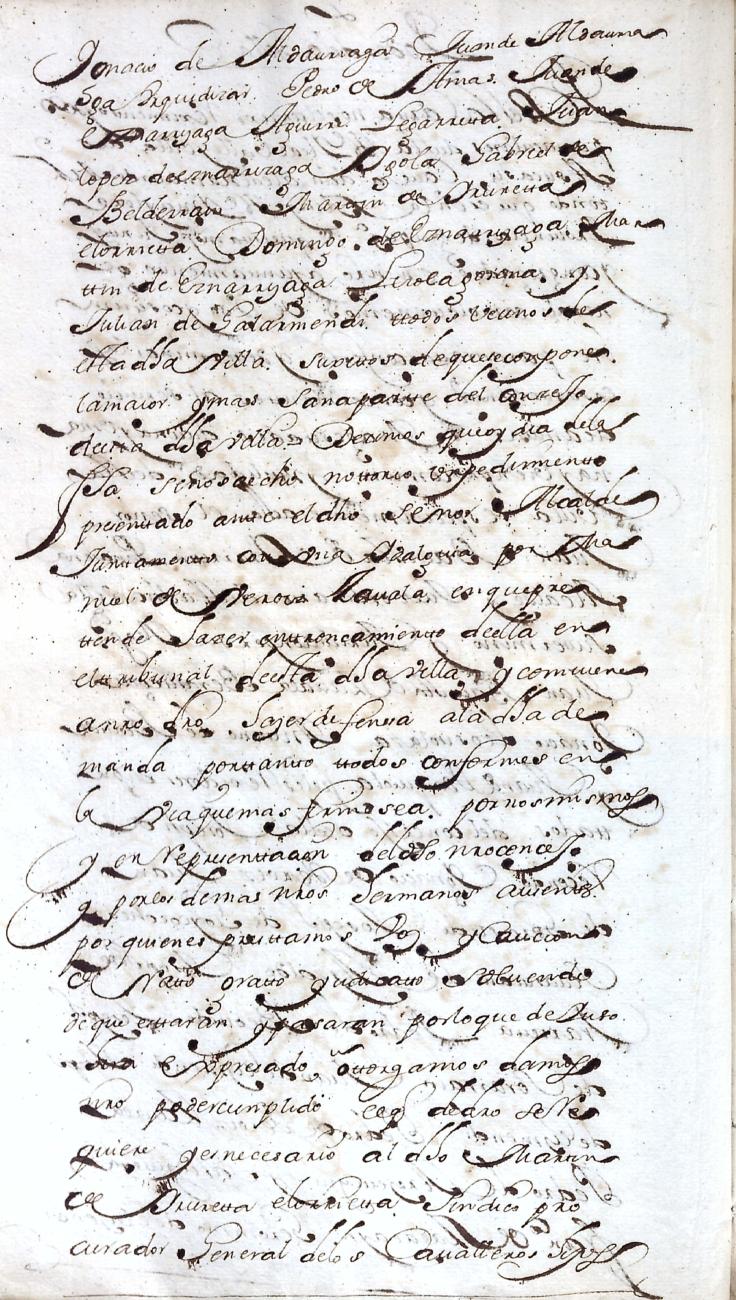 Ygnacio de Aldaurriaga Juan de Aldaurria
ga Yrquidizar. Pedro de Armas. Juan de
Eznarryaga Aguirre Legarreta Juan
lopez de eznarrizaga Ygola Gabriel de
Belderrain Martin de Yruretta
elorrietta Domingo de Eznarryaga Mar
ttin de Eznarryaga Lirola y
Julian de Galarmendi ttodos vecinos de
estta dha villa. supttos de que se compone
la maior y mas sana partte del conzejo
de estta dha villa = Dezimos que oy dia de la
fha se nos a echo nottorio un pedimientto
presenttado antte el dho señor Alcalde
Junttamentte con una por Ma
nuel de Zavala en que pre
ttende hazer enttroncamientto della en
el ttribunal de estta dha villa, y combiene
a nro dro hazer defensa a la dha de
manda porttantto ttodos conformes en
la via que mas firme sea. por nos mismos
y en representtazion del dho nro concejo
y por los demas nros hermanos ausenttes.
por quienes presttamos voz y Caucion
de ratto gratto yudicatto solbendo
de que esttaran y pasaran por lo que de Yuso
sera expresado, ottorgamos damos
nro poder cumplido el q de dro se re
quiere y es necesario al dho Marttin
de Yruretta elorrietta. Sindico pro
curador General de los Cavalleros hijos